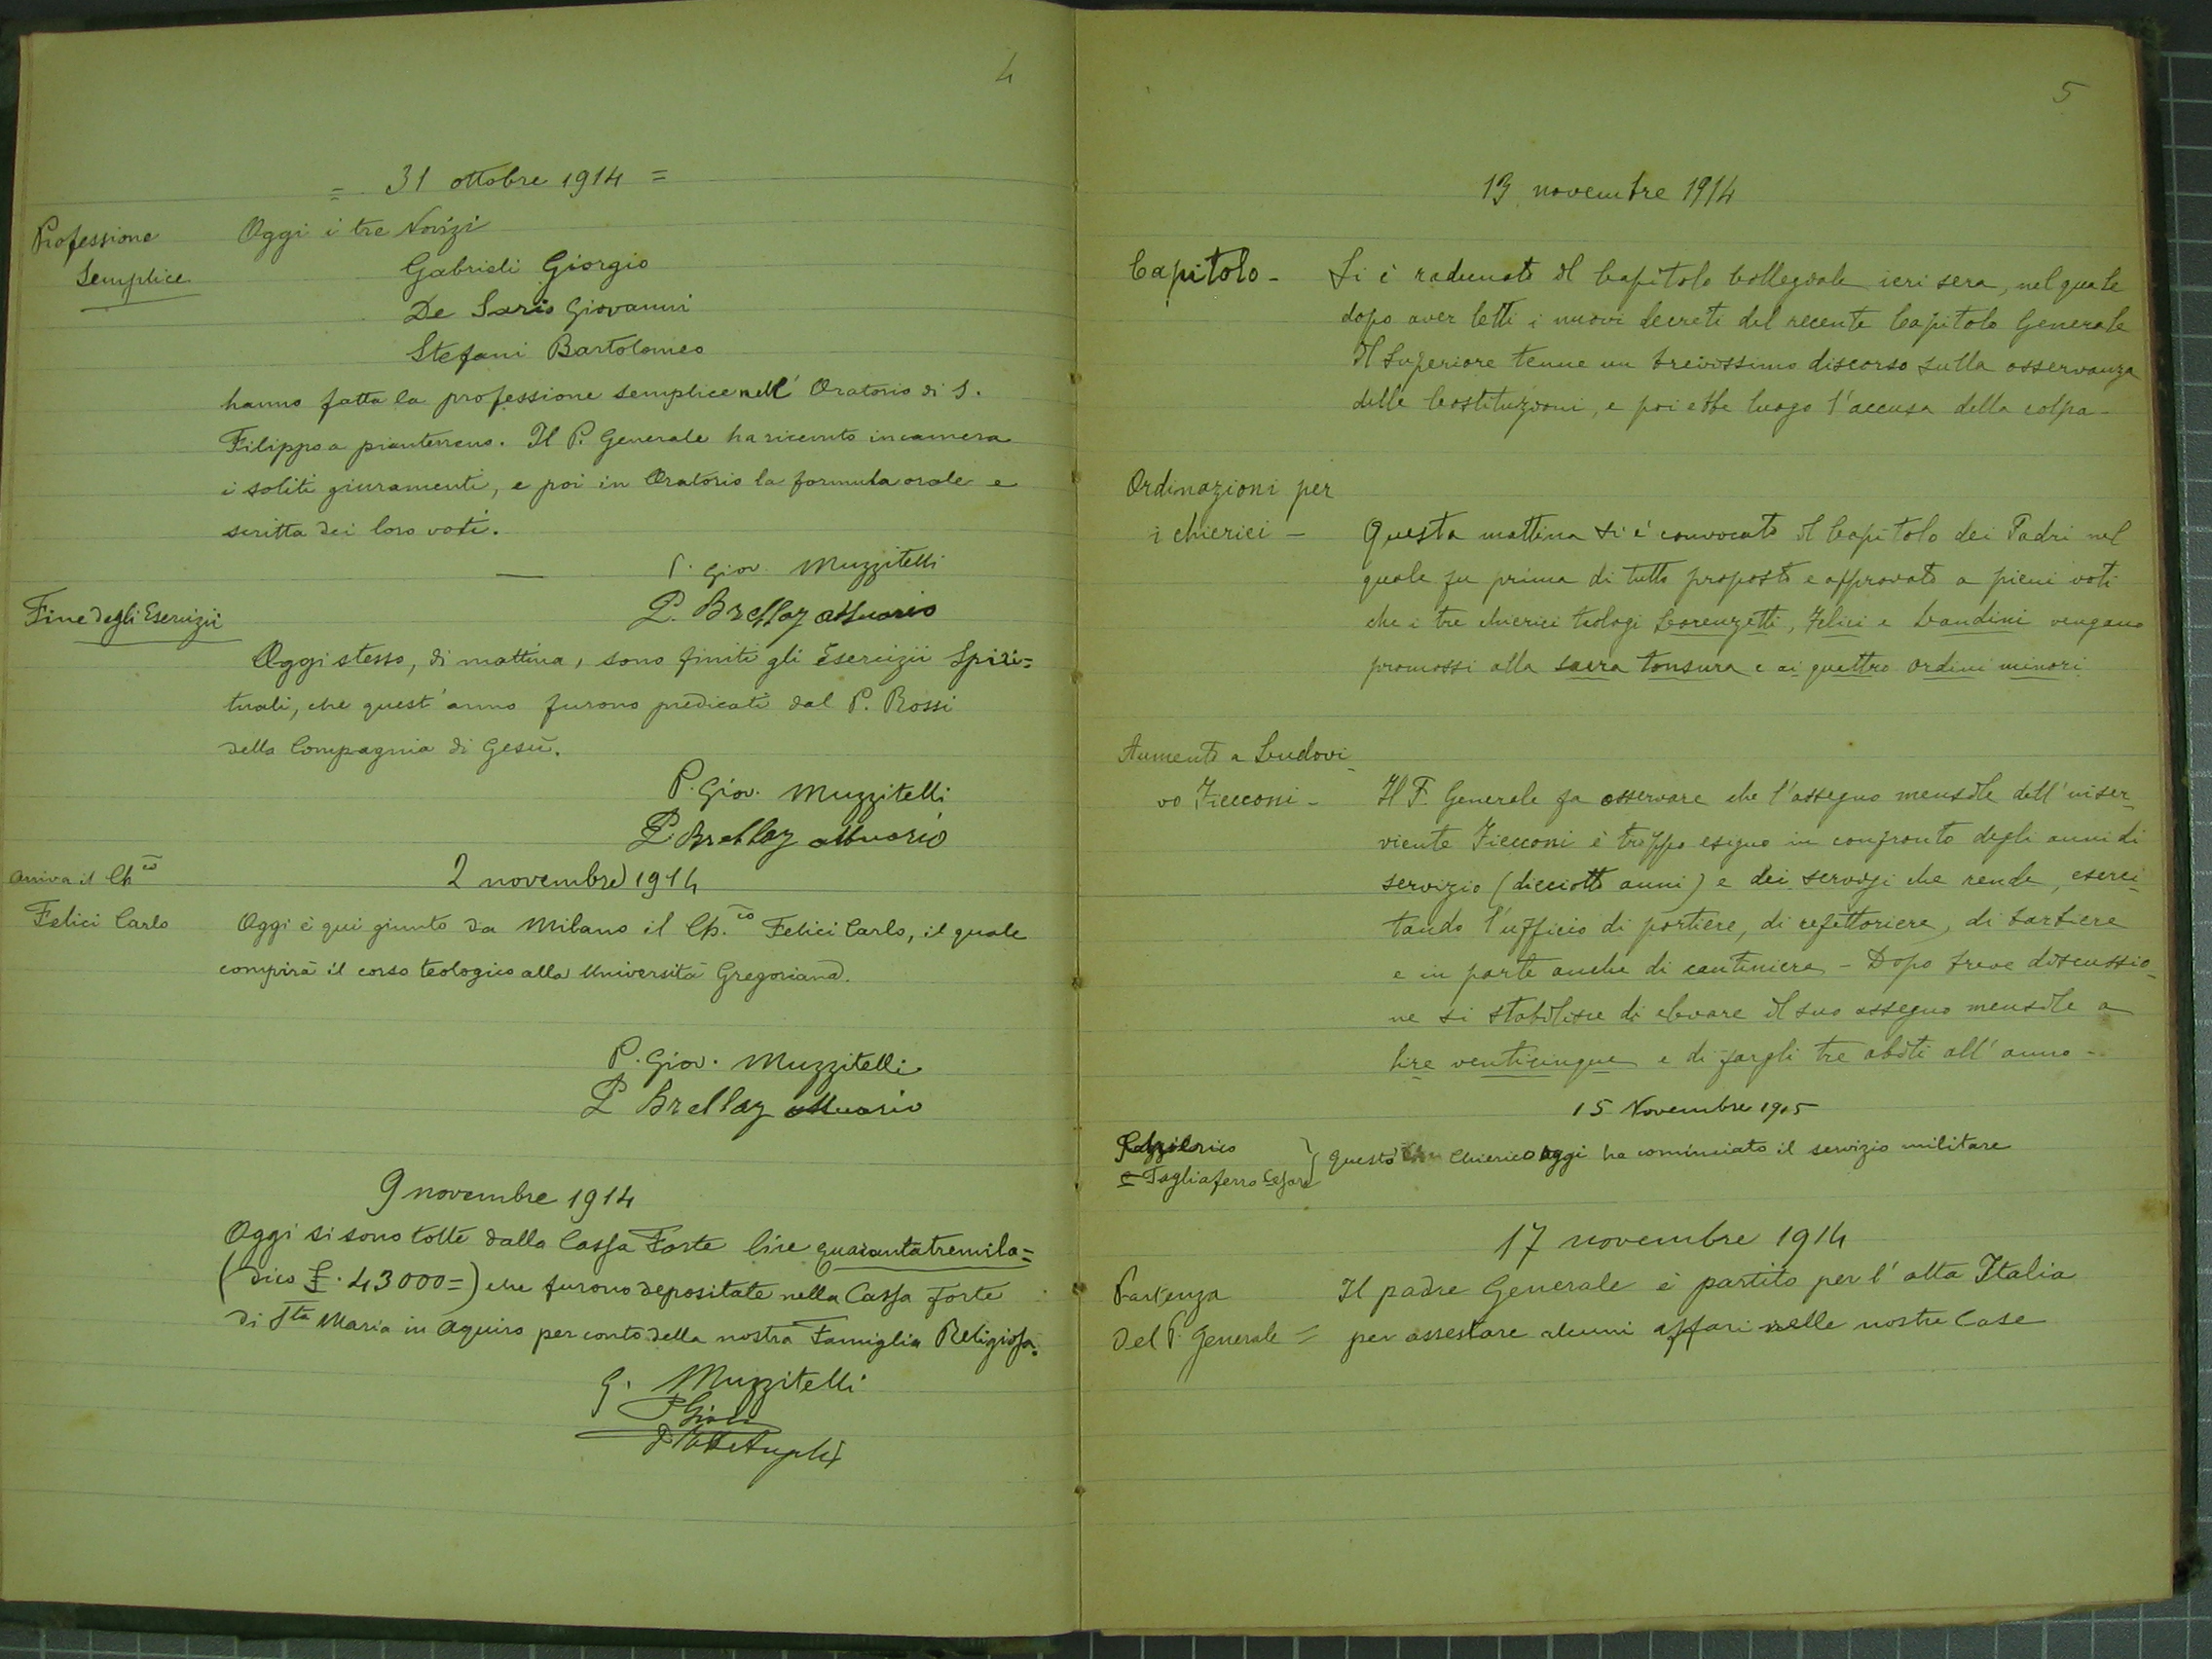 4
= 31 ottobre 1914 =
Professione
Semplice
Oggi i tre Novizi
Gabrieli Giorgio
De Sario Giovanni
Stefani Bartolomeo
hanno fatta la professione semplice nell' Oratorio di S.
Filippo a pianterreno. Il P. Generale ha ricevuto in camera
i soliti giuramenti, e poi in Oratorio la formula orale e
scritta dei loro voti.
P. Giov. Muzzitelli
P. Brellaz attuario
Fine degli Esercizii
Oggi stesso, di mattina, sono finiti gli Esercizii Spiri=
tuali, che quest'anno furono predicati dal P. Rossi
della Compagnia di Gesù.
P. Giov. Muzzitelli
P. Brellaz attuario
2 novembre 1914
Arriva il Ch.co
Felici Carlo
Oggi è qui giunto da Milano il Ch.co Felici Carlo, il quale
compirà il corso teologico alla Università Gregoriana.
P. Giov. Muzzitelli
P. Brellaz attuario
9 novembre 1914
Oggi si sono tolte dalla Cassa Forte lire quarantatremila=
(dico £. 43000=) che furono depositate nella Cassa Forte
di Sta Maria in Aquiro per conto della nostra Famiglia Religiosa.
G. Muzzitelli
5
13 novembre 1914
Capitolo - Si è radunato il Capitolo Collegiale ieri sera, nel quale
dopo aver letti i nuovi decreti del recente Capitolo Generale
il Superiore tenne un brevissimo discorso sulla osservanza
delle Costituzioni, e poi ebbe luogo l'accusa della colpa -
Ordinazioni per
i chierici - Questa mattina si è convocato il Capitolo dei Padri nel
quale fu prima di tutto proposto e approvato a pieni voti
che i tre chierici teologi Lorenzetti, Felici e Landini vengano
promossi alla sacra tonsura e ai quattro ordini minori
Aumento a Ludovi-
vo Ficcconi - Il P. Generale fa osservare che l'assegno mensile dell'inser-
viente Ficcconi è troppo esiguo in confronto degli anni di
servizio (diciotto anni) e dei servizi che rende, eserci-
tando l'ufficio di portiere, di refettoriere, di barbiere
e in parte anche di cantiniere - Dopo breve discussio-
ne si stabilisce di elevare il suo assegno mensile a
lire venticinque e di fargli tre abiti all'anno -
15 Novembre 1915
Tagliaferro Cesare
questo Chierico oggi ha cominciato il servizio militare
17 novembre 1914
Partenza
del P. Generale =
Il padre Generale è partito per l'alta Italia
per assestare alcuni affari nelle nostre Case